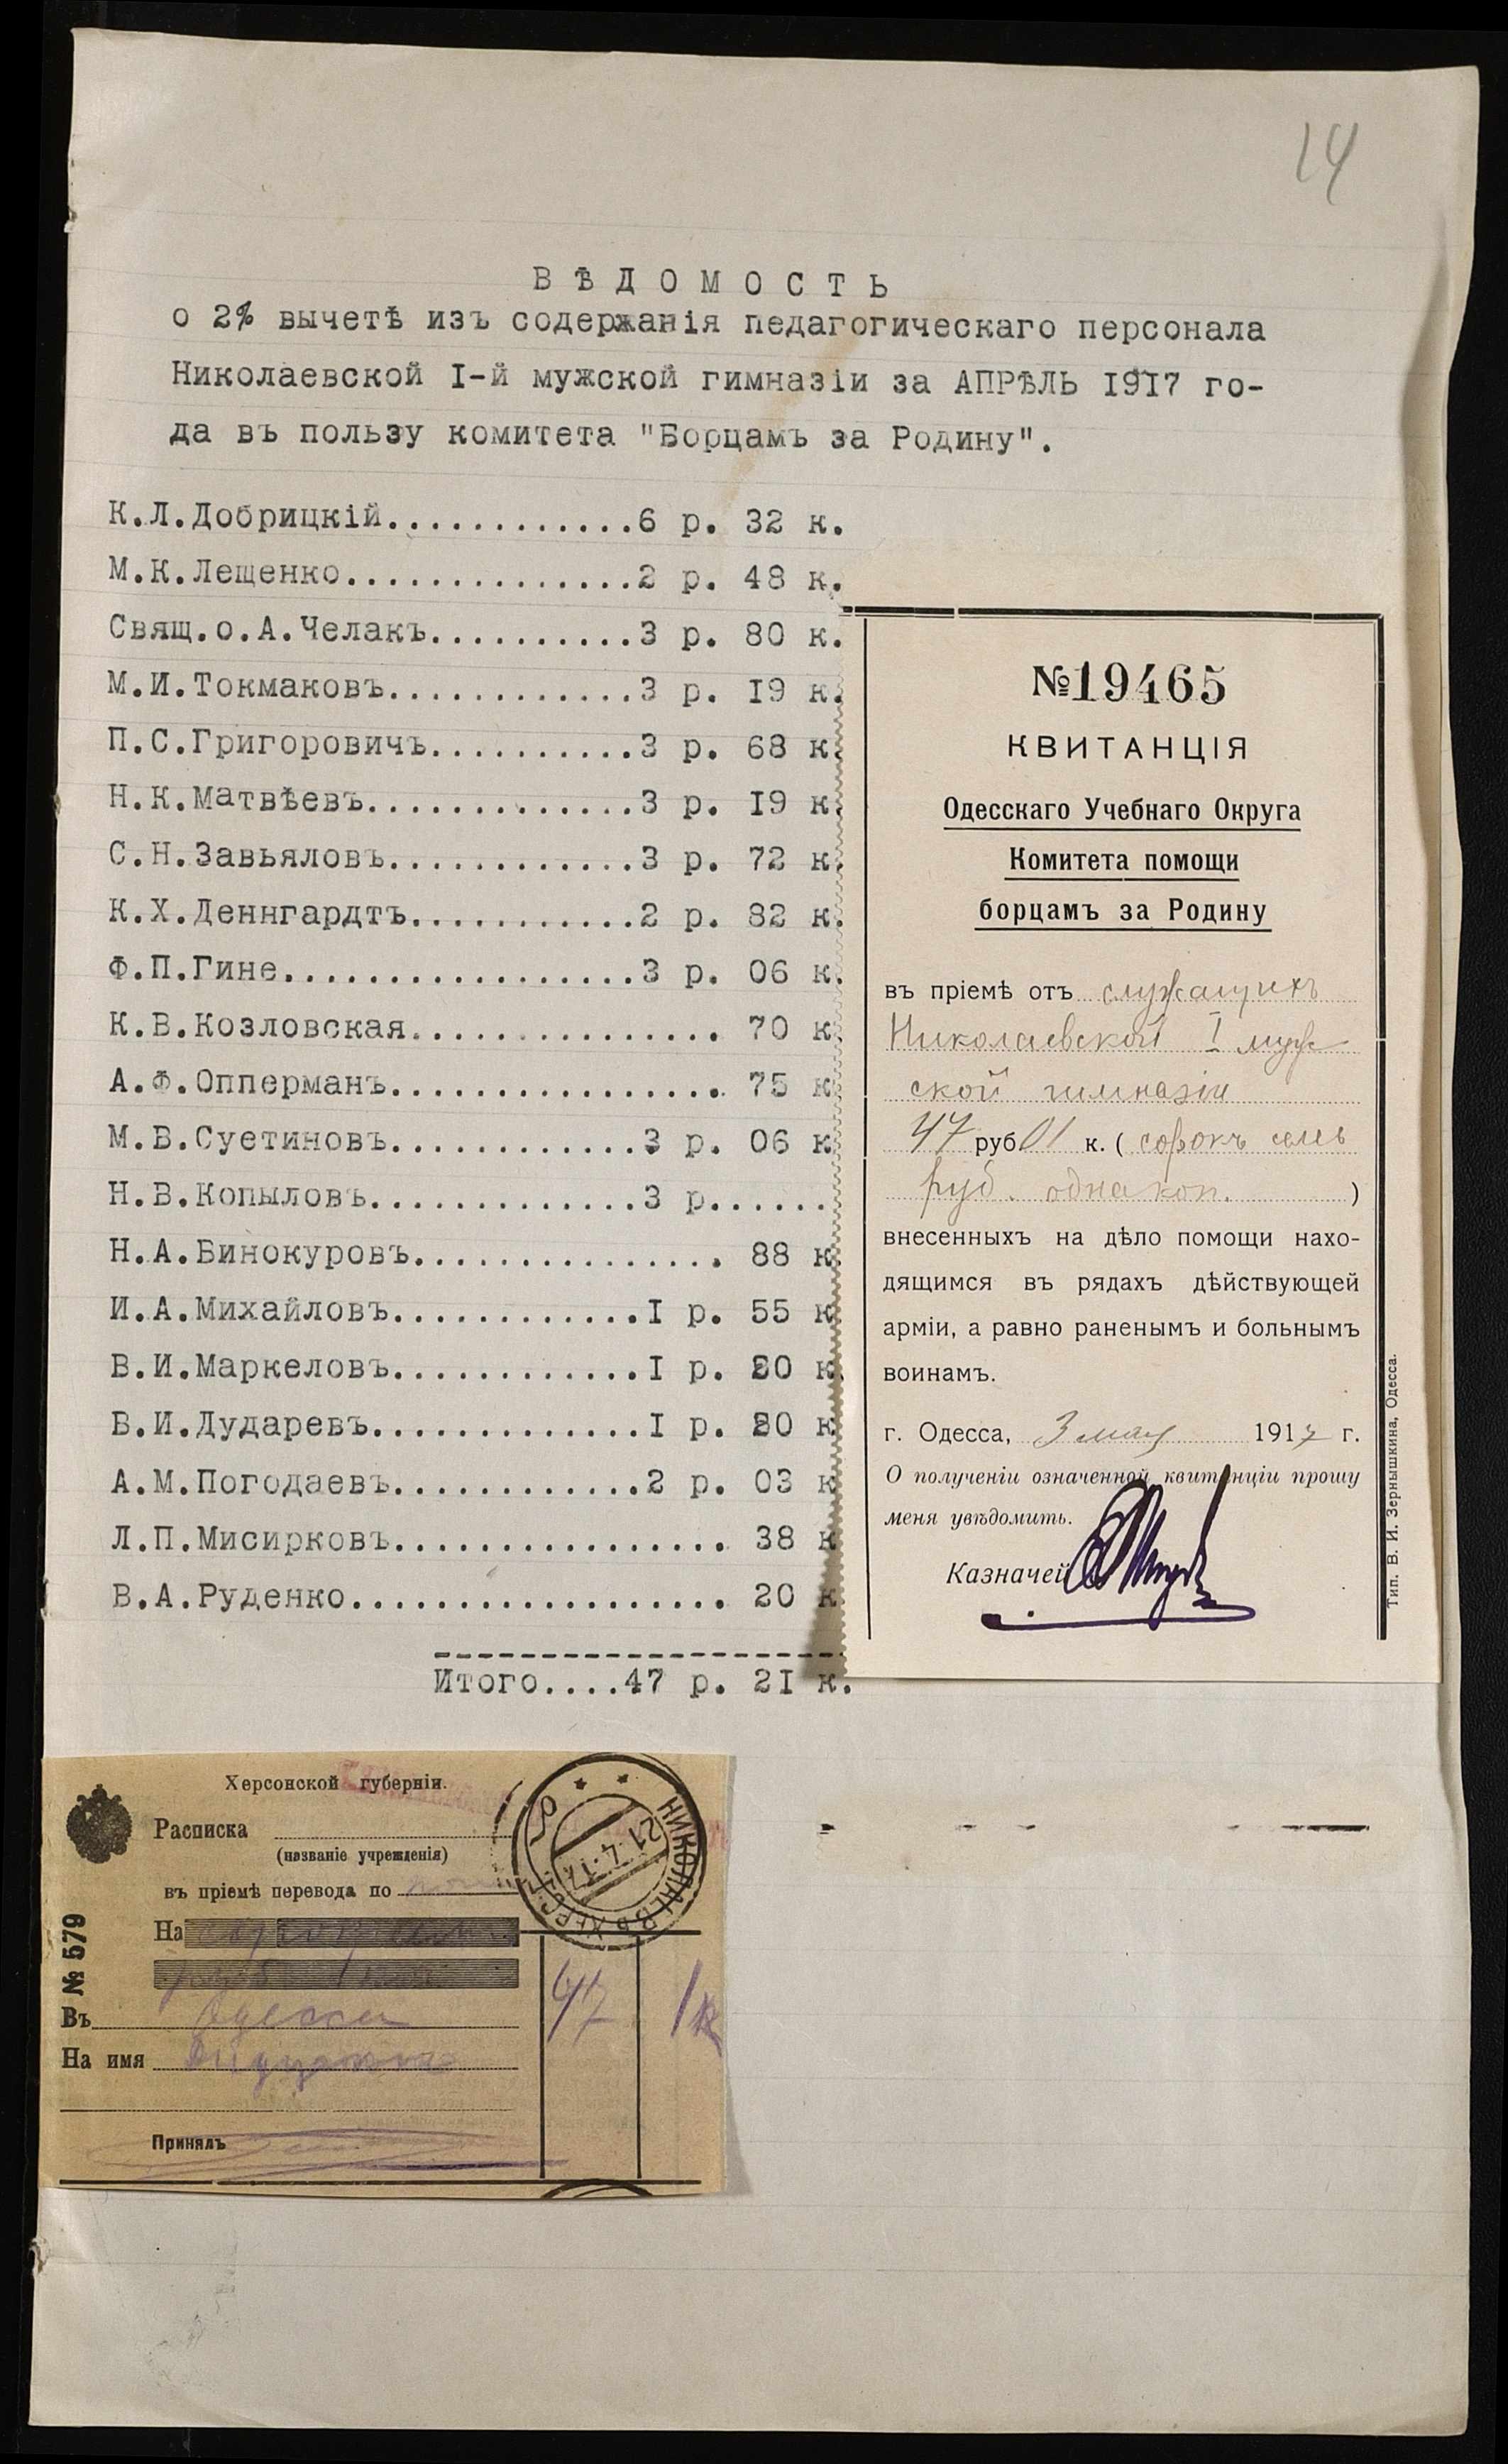 14
ВѢДОМОСТЬ
о 2% вычетѣ изъ содержанія педагогическаго персонала
Николаевской I-й мужской гимназіи за АПРѢЛЬ 1917 го-
да въ пользу комитета "Борцамъ за Родину".
К.Л.Добрицкій............6 р. 32 к.
М.К.Лещенко..............2 р. 48 к.
Свящ.о.А.Челакъ..........3 р. 80 к.
М.И.Токмаковъ............3 р. I9 к.
П.С.Григоровичъ..........3 р. 68 к.
Н.К.Матвѣевъ.............3 р. I9 к.
С.Н.Завьяловъ............3 р. 72 к.
К.Х.Деннгардтъ...........2 р. 82 к.
Ф.П.Гине.................3 р. 06 к.
К.В.Козловская............... 70 к.
А.Ф.Опперманъ................ 75 к
М.В.Суетиновъ............3 р. 06 к
Н.В.Копыловъ.............3 р......
Н.А.Винокуровъ............... 88 к
И.А.Михайловъ............I р. 55 к
В.И.Маркеловъ............I р. 20 к
В.И.Дударевъ.............I р. 20 к
А.М.Погодаевъ............2 р. 03 к
Л.П.Мисирковъ................ 38 к
В.А.Руденко.................. 20 к
Итого....47 р. 2I к.
№19465
КВИТАНЦІЯ
Одесскаго Учебнаго Округа
Комитета помощи
борцамъ за Родину
въ пріемѣ отъ служащихъ
Николаевской I муж
ской гимназіи
47 руб 01 к. ( сорокъ семь
руб. одна коп. )
внесенныхъ на дѣло помощи нахо-
дящимся въ рядахъ дѣйствующей
арміи, а равно раненымъ и больнымъ
воинамъ.
г. Одесса, 3 мая 1917 г.
О полученіи означенной квитанціи прошу
меня увѣдомить.
Казначей
Тип. В. И. Зернышкина, Одесса.
Херсонской губерніи.
Расписка
(названіе учрежденія)
въ пріемѣ перевода по
№ 579
На
Въ Одесса
На имя
47 1к
Принялъ
НИКОЛАЕВЪ ХЕРС.
21.4.17